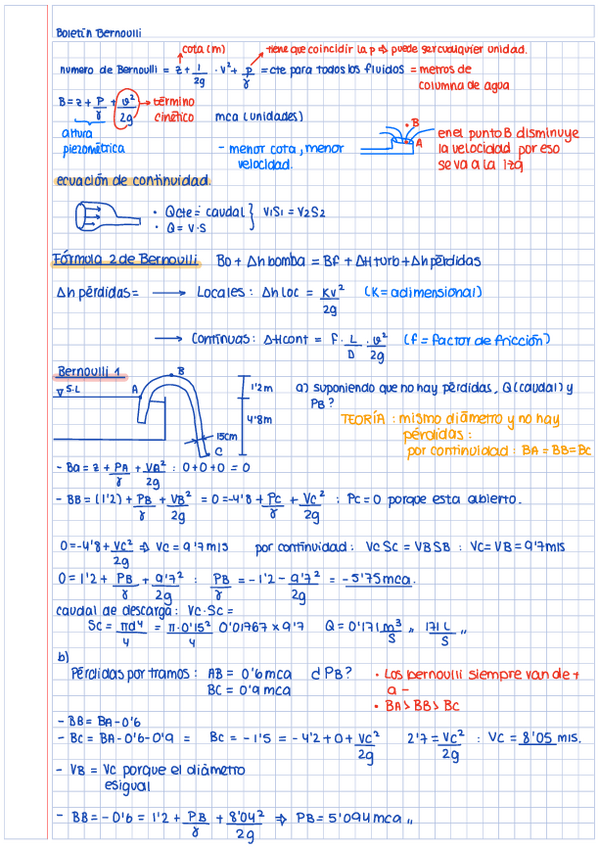 Boletín Bernoulli
cota (m)
tiene que coincidir la p → puede ser cualquier unidad.
numero de Bernoulli = z + 1/2g · v² + p/γ = cte para todos los fluidos = metros de
columna de agua
B = z + P/γ + v²/2g → término
cinético
mca (unidades)
altura
piezométrica
- menor cota, menor
velocidad.
B
A
en el punto B disminuye
la velocidad por eso
se va a la izq
ecuación de continuidad.
• Qcte = caudal } V1S1 = V2S2
• Q = V·S
Fórmula 2 de Bernoulli Bo + Δh bomba = Bf + ΔH turb + Δh pérdidas
Δh pérdidas = → Locales: Δh loc = Kv²/2g (K = adimensional)
→ Continuas: ΔH cont = f · L/D · v²/2g (f = factor de fricción)
Bernoulli 1
S.L
A
B
C
15cm
1'2m
4'8m
a) suponiendo que no hay pérdidas, Q (caudal) y
PB?
TEORÍA: mismo diámetro y no hay
pérdidas:
por continuidad: BA = BB = BC
- Ba = z + PA/γ + VA²/2g : 0+0+0 = 0
- BB = (1'2) + PB/γ + VB²/2g = 0 = -4'8 + PC/γ + VC²/2g : PC = 0 porque esta abierto.
0 = -4'8 + VC²/2g ⇒ VC = 9'7 m/s por continuidad: VC SC = VB SB : VC = VB = 9'7 m/s
0 = 1'2 + PB/γ + 9'7²/2g : PB/γ = -1'2 - 9'7²/2g = -5'75 mca.
caudal de descarga: VC·SC =
SC = πd⁴/4 = π·0'15²/4 0'01767 x 9'7 Q = 0'171 m³/s ,, 171 L/s ,,
b)
Pérdidas por tramos: AB = 0'6 mca ¿PB?
BC = 0'9 mca
• Los bernoulli siempre van de +
a -
• BA > BB > BC
- BB = BA - 0'6
- BC = BA - 0'6 - 0'9 = BC = -1'5 = -4'2 + 0 + VC²/2g 2'7 = VC²/2g : VC = 8'05 m/s.
- VB = VC porque el diámetro
es igual
- BB = -0'6 = 1'2 + PB/γ + 8'04²/2g ⇒ PB = 5'094 mca ,,